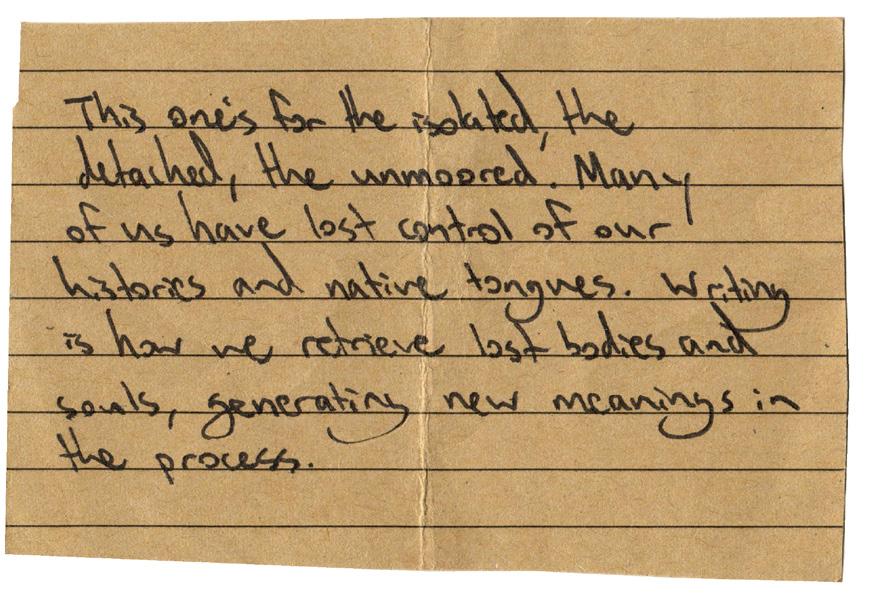 This one's for the isolated, the
detached, the unmoored. Many
of us have lost control of our
histories and native tongues. Writing
is how we retrieve lost bodies and
souls, generating new meanings in
the process.